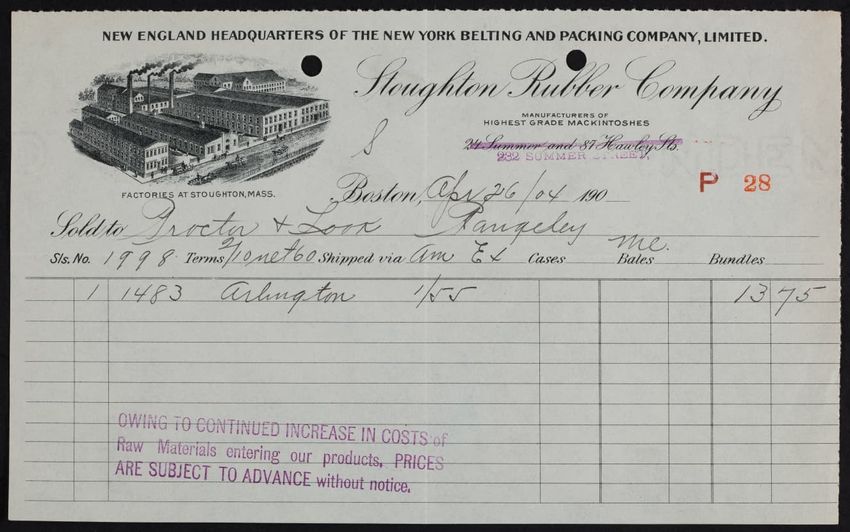 NEW ENGLAND HEADQUARTERS OF THE NEW YORK BELTING AND PACKING COMPANY, LIMITED.
Stoughton Rubber Company
MANUFACTURERS OF
HIGHEST GRADE MACKINTOSHES
24 Summer and 87 Hawley Sts.
232 SUMMER STREET,
S
FACTORIES AT STOUGHTON, MASS.
Boston, Apr 26/04 190
P 28
Sold to Proctor & Look Rangeley Me.
Sls. No. 1998 Terms 2/10 net 60 Shipped via Am Ex Cases Bales Bundles
1 1483 Arlington 1/55 13 75
OWING TO CONTINUED INCREASE IN COSTS of
Raw Materials entering our products, PRICES
ARE SUBJECT TO ADVANCE without notice.